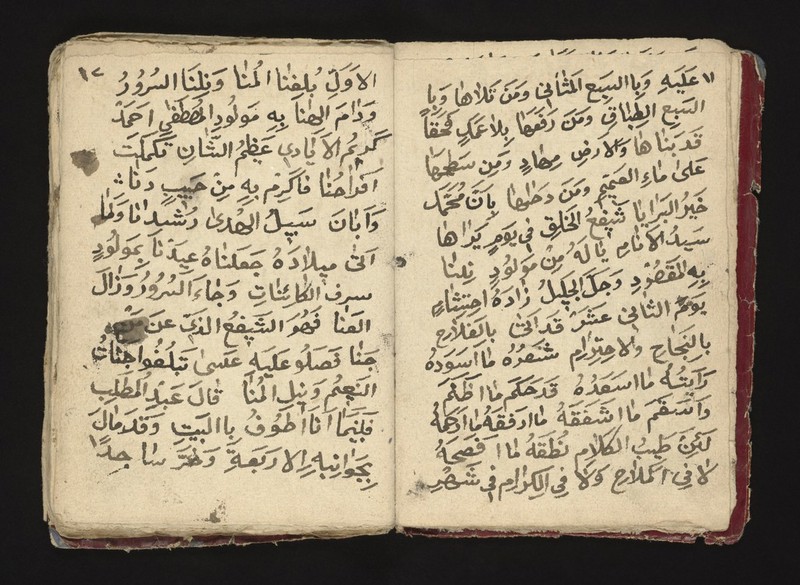 ١١
عليه وبالسبع المثاني ومن تلاها وبا
السبع الطباق ومن رفعها بلا عمد فحقا
قد بناها والارض مهاد ومن سطحها
على ماء ومن دحاها بان محمد
خير البرايا شفيع الخلق في يوم يراها
سيد الانام ياله من مولود نلنا
به المقصود وجل الجليل زاده احتشام
يوم الثاني عشر قد اتى بالفلاح
بالنجاح والاحترام شعره ما اسوده
رايته ما اسعده قد حكم ما اظلم
ما اشفقه ما ارفقه ما ارحمه
لين طيب الكلام نطقه ما افصحه
لا في الملاح ولا في الكرام في شهر
١٢
الاول بلغنا المنا ونلنا السرور
ودام الهنا به مولود المصطفى احمد
كريم الايادي عظيم الشان تكملت
افراحنا فاكرم به من حبيب دنا
وابان سبيل الهدى رشدانا ولما
اتى ميلاده جعلناه عيدنا بمولود
سرف الكائنات وجاء السرور وزال
العنا فهو الشفيع الذي عن
جنا فصلو عليه عسى تبلغوا جنات
النعيم ونيل المنا قال عبد المطلب
فبينما انا اطوف باالبيت وقد مال
بجوانبه الاربعة وخر ساجدا